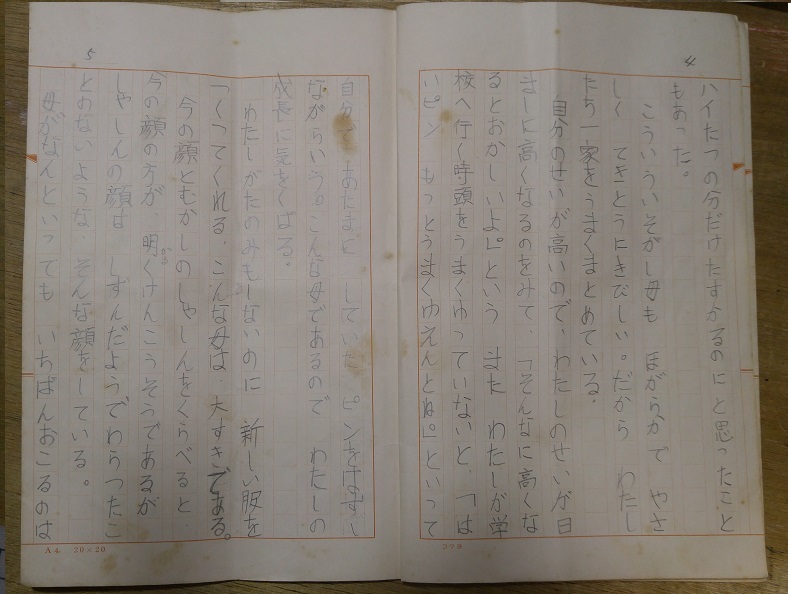 4
ハイたつの分だけたすかるのにと思ったこと
もあった。
こういういそがし母も ほがらかで やさ
しく てきとうにきびしい。だから わたし
たち一家をうまくまとめている。
自分のせいが高いので、わたしのせいが日
ましに高くなるのをみて、「そんなに高くな
るとおかしいよ。」という また わたしが学
校へ行く時頭をうまくゆっていないと、「は
いピン もっとうまくゆえんとね。」といって
279
5
自分で あたまに していた ピンをはずし
ながらいう。こんな母であるので わたしの
成長に気をくばる。
わたしがたのみもしないのに 新しい服を
つくってくれる、こんな母は、大すきである。
今の顔とむかしのしゃしんをくらべると、
今の顔の方が、明かるくけんこうそうであるが
しゃしんの顔は しずんだようでわらったこ
とのないような、そんな顔をしている。
母がなんといっても いちばんおこるのは
A4 20×20